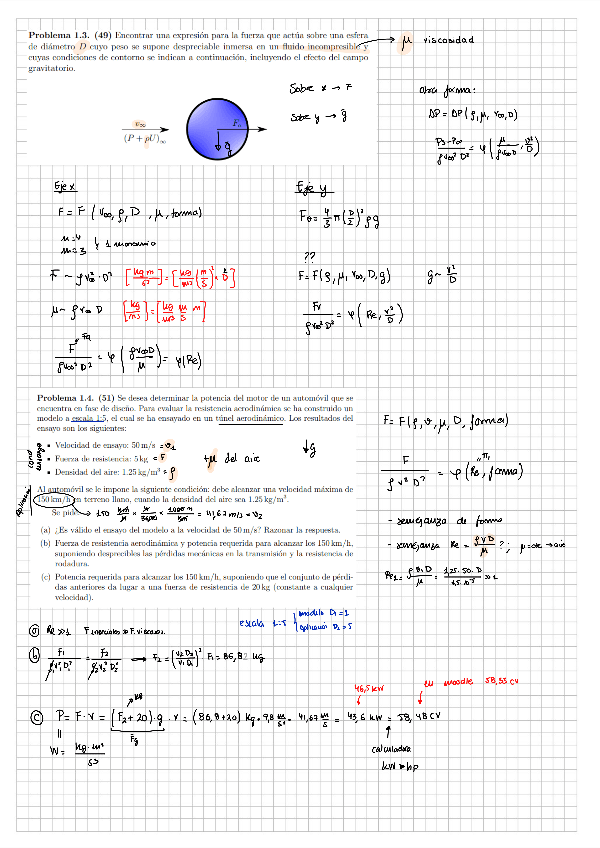 Problema 1.3. (49) Encontrar una expresión para la fuerza que actúa sobre una esfera
de diámetro D cuyo peso se supone despreciable inmersa en un fluido incompresible y
cuyas condiciones de contorno se indican a continuación, incluyendo el efecto del campo
gravitatorio.
μ viscosidad
Sobre x → F
Sobre y → g
Otra forma:
ΔP = ΔP (ρ, μ, v∞, D)
v∞
(P + ρU)∞
F
g
Eje x
F = F (v∞, ρ, D, μ, forma)
F ~ ρ v∞² · D² [kg m / s²] = [kg/m³ (m/s)² · D²]
μ ~ ρ v∞ D
F / ρ v∞² D² = φ (ρ v∞ D / μ) = φ(Re)
Eje y
F = 4/3 π (D/2)³ ρ g
??
F = F (ρ, μ, v∞, D, g) g ~ v²/D
Fy / ρ v∞² D² = φ (Re, v²/D)
Problema 1.4. (51) Se desea determinar la potencia del motor de un automóvil que se
encuentra en fase de diseño. Para evaluar la resistencia aerodinámica se ha construido un
modelo a escala 1:5, el cual se ha ensayado en un túnel aerodinámico. Los resultados del
ensayo son los siguientes:
▪ Velocidad de ensayo: 50 m/s = v₁
▪ Fuerza de resistencia: 5 kg = F
▪ Densidad del aire: 1.25 kg/m³ = ρ
+μ del aire
↓g
Al automóvil se le impone la siguiente condición: debe alcanzar una velocidad máxima de
150 km/h en terreno llano, cuando la densidad del aire sea 1.25 kg/m³.
Se pide: → 150 km/h × h/3600 × 1000 m/km = 41,67 m/s = v₂
(a) ¿Es válido el ensayo del modelo a la velocidad de 50 m/s? Razonar la respuesta.
(b) Fuerza de resistencia aerodinámica y potencia requerida para alcanzar los 150 km/h,
suponiendo despreciables las pérdidas mecánicas en la transmisión y la resistencia de
rodadura.
(c) Potencia requerida para alcanzar los 150 km/h, suponiendo que el conjunto de pérdi-
das anteriores da lugar a una fuerza de resistencia de 20 kg (constante a cualquier
velocidad).
F = F(ρ, v, μ, D, forma)
F / ρ v² D² = φ (Re, forma)
- semejanza de forma
- semejanza Re = ρVD/μ ?; μ=cte → aire
escala 1:5 modelo D₁=1
aplicación D₂=5
ⓐ Re >> 1 F inerciales >> F. viscosas
ⓑ F₁ / ρ₁v₁²D₁² = F₂ / ρ₂v₂²D₂² → F₂ = (v₂ D₂ / v₁ D₁)² F₁ = 86,82 kg
ⓒ P = F · v = (F₂ + 20) · g · v = (86,8 + 20) kg · 9,8 m/s² · 41,67 m/s = 43,6 kW = 58,48 CV
kg
46,5 kW
en moodle 58,33 CV
W = kg · m² / s³
calculadora
kW → hp